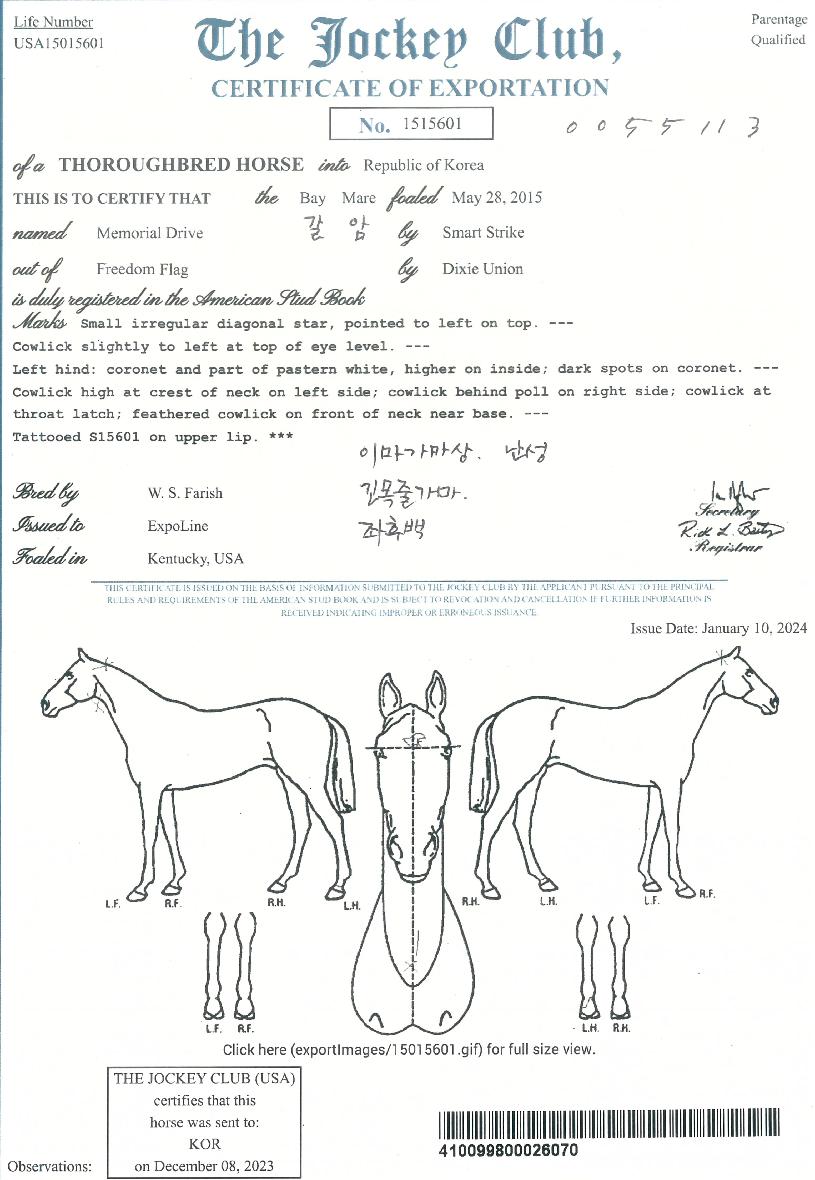 Life Number
USA15015601
The Jockey Club,
Parentage
Qualified
CERTIFICATE OF EXPORTATION
No. 1515601
0055113
of a THOROUGHBRED HORSE into Republic of Korea
THIS IS TO CERTIFY THAT the Bay Mare foaled May 28, 2015
갈 암
named Memorial Drive by Smart Strike
out of Freedom Flag by Dixie Union
is duly registered in the American Stud Book
Marks Small irregular diagonal star, pointed to left on top. ---
Cowlick slightly to left at top of eye level. ---
Left hind: coronet and part of pastern white, higher on inside; dark spots on coronet. ---
Cowlick high at crest of neck on left side; cowlick behind poll on right side; cowlick at
throat latch; feathered cowlick on front of neck near base. ---
Tattooed S15601 on upper lip. ***
이마가마상. 난성
Bred by W. S. Farish
긴목줄가마.
Issued to ExpoLine
좌후백
Foaled in Kentucky, USA
Secretary
Rick L. Bailey
Registrar
THIS CERTIFICATE IS ISSUED ON THE BASIS OF INFORMATION SUBMITTED TO THE JOCKEY CLUB BY THE APPLICANT PURSUANT TO THE PRINCIPAL
RULES AND REQUIREMENTS OF THE AMERICAN STUD BOOK AND IS SUBJECT TO REVOCATION AND CANCELLATION IF FURTHER INFORMATION IS
RECEIVED INDICATING IMPROPER OR ERRONEOUS ISSUANCE.
Issue Date: January 10, 2024
L.F. R.F. R.H. L.H. R.H. L.H. L.F. R.F.
L.F. R.F. L.H. R.H.
Click here (exportImages/15015601.gif) for full size view.
THE JOCKEY CLUB (USA)
certifies that this
horse was sent to:
KOR
on December 08, 2023
Observations:
410099800026070